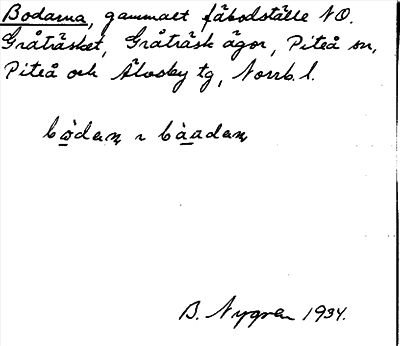 Bodarna, gammalt fäbodställe NO.
Gråträsket, Gråträsk ägor, Piteå sn,
Piteå och Älvsby tg, Norrb. l.
bödaṇ ~ bàadaṇ
B. Nygren 1934.